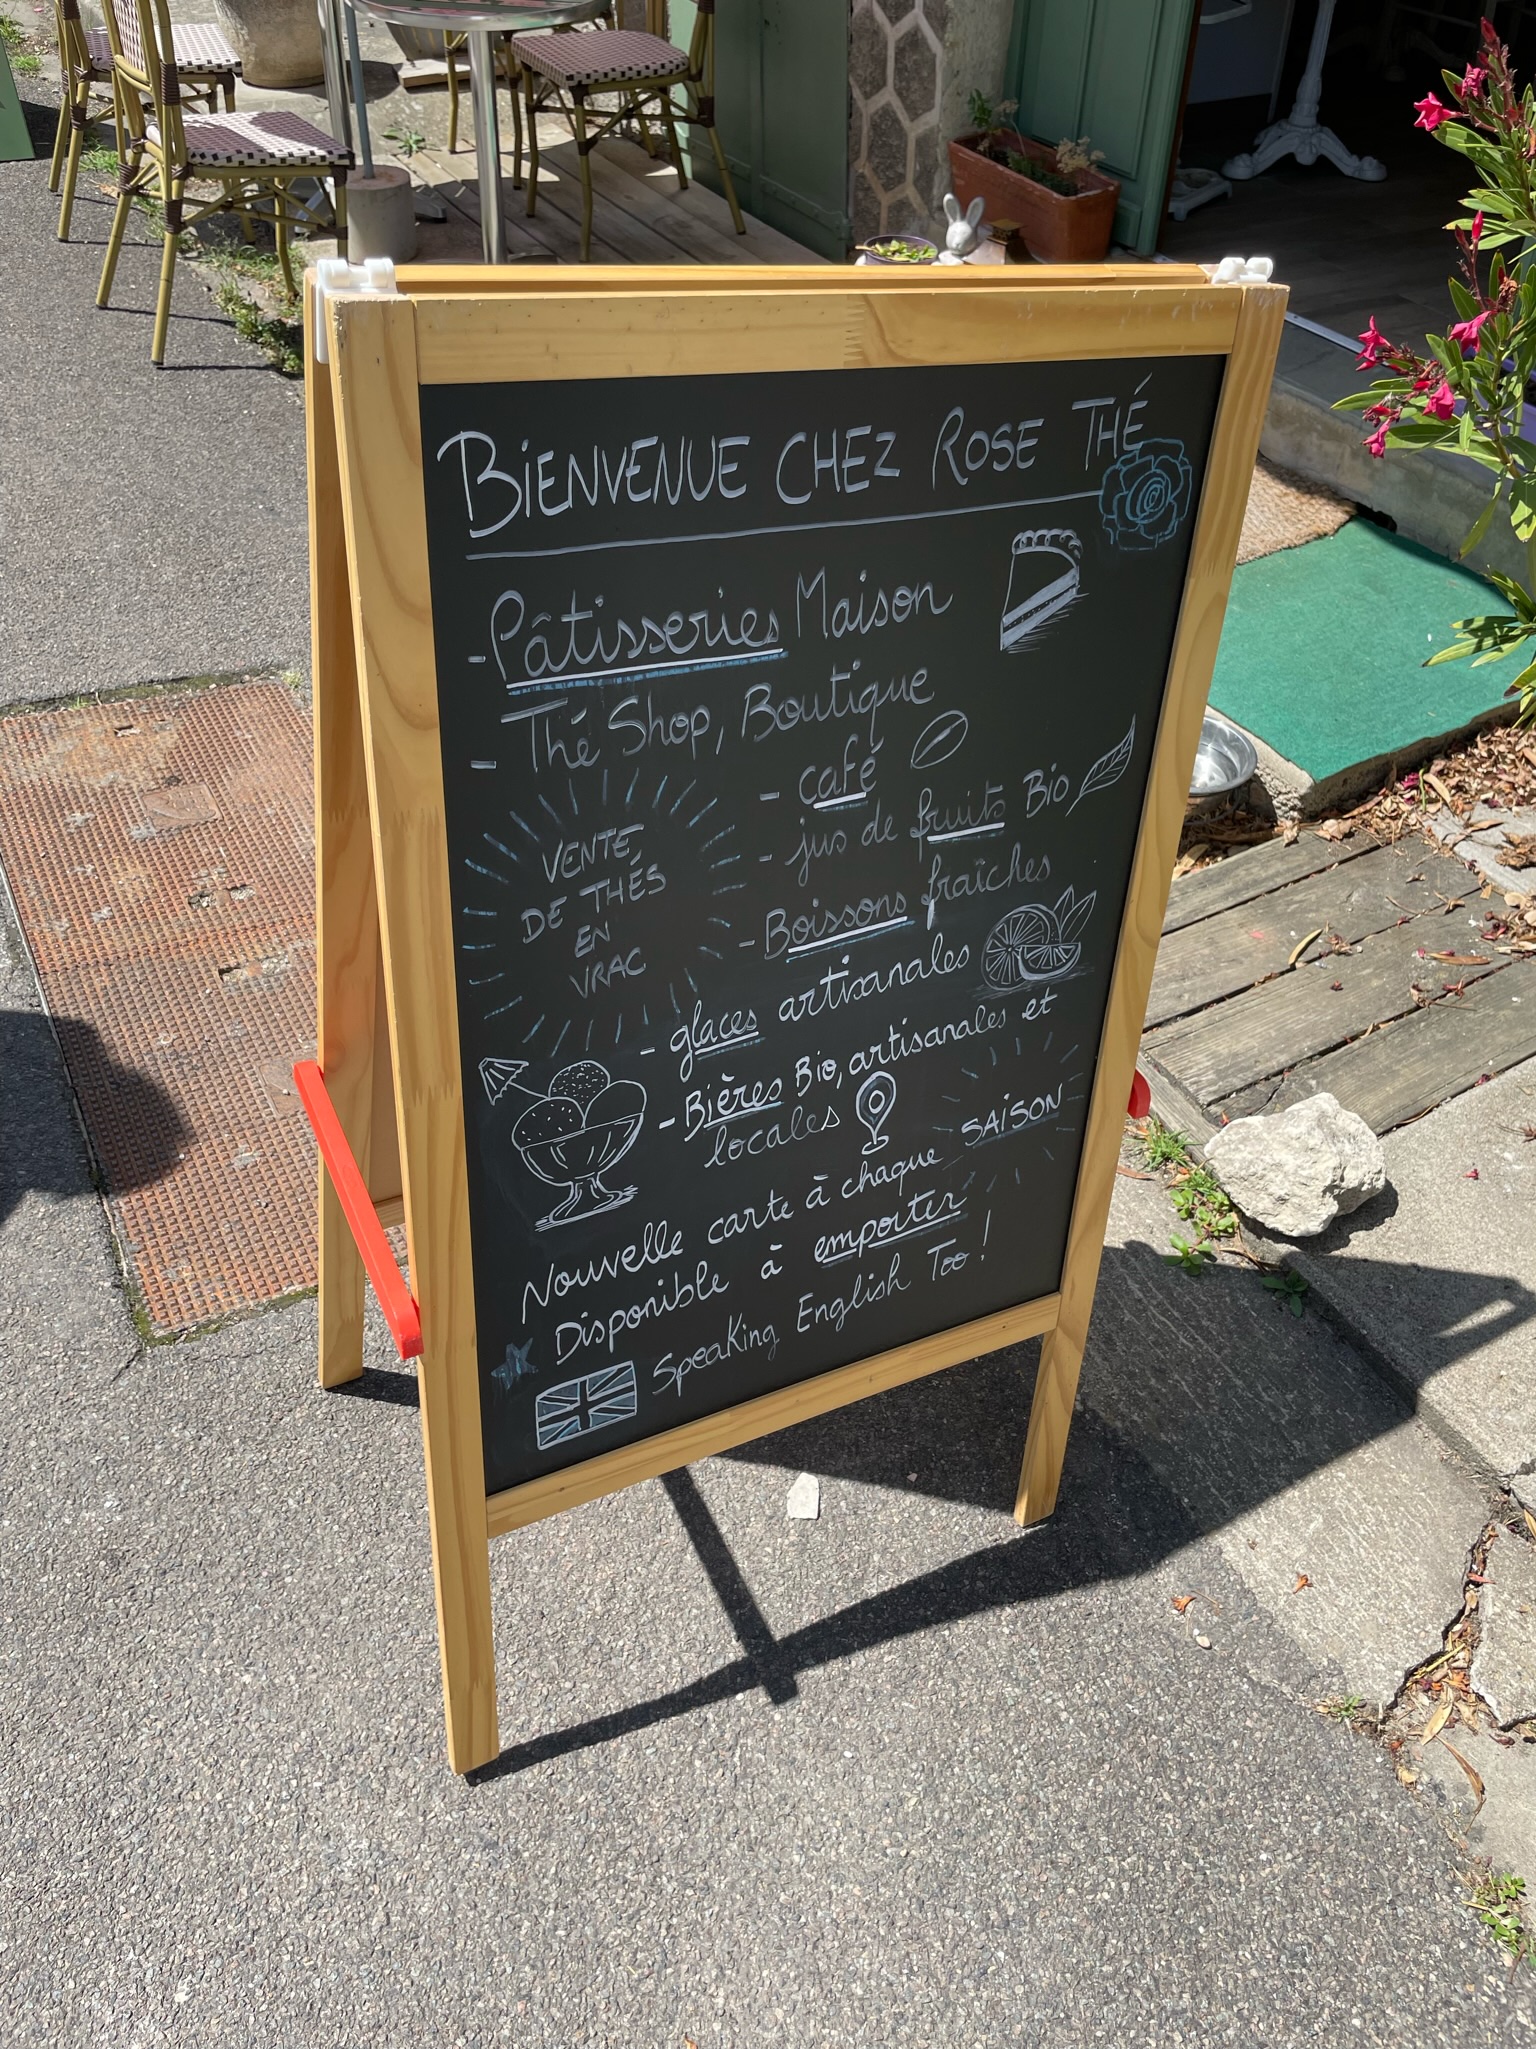 BiENVENUE CHEZ ROSE THÉ
- Pâtisseries Maison
- Thé Shop, Boutique
- café
- jus de fruits Bio
- Boissons fraîches
VENTE
DE THÉS
EN
VRAC
- glaces artisanales
- Bières Bio, artisanales et
locales
Nouvelle carte à chaque SAiSON
Disponible à emporter
Speaking English Too !